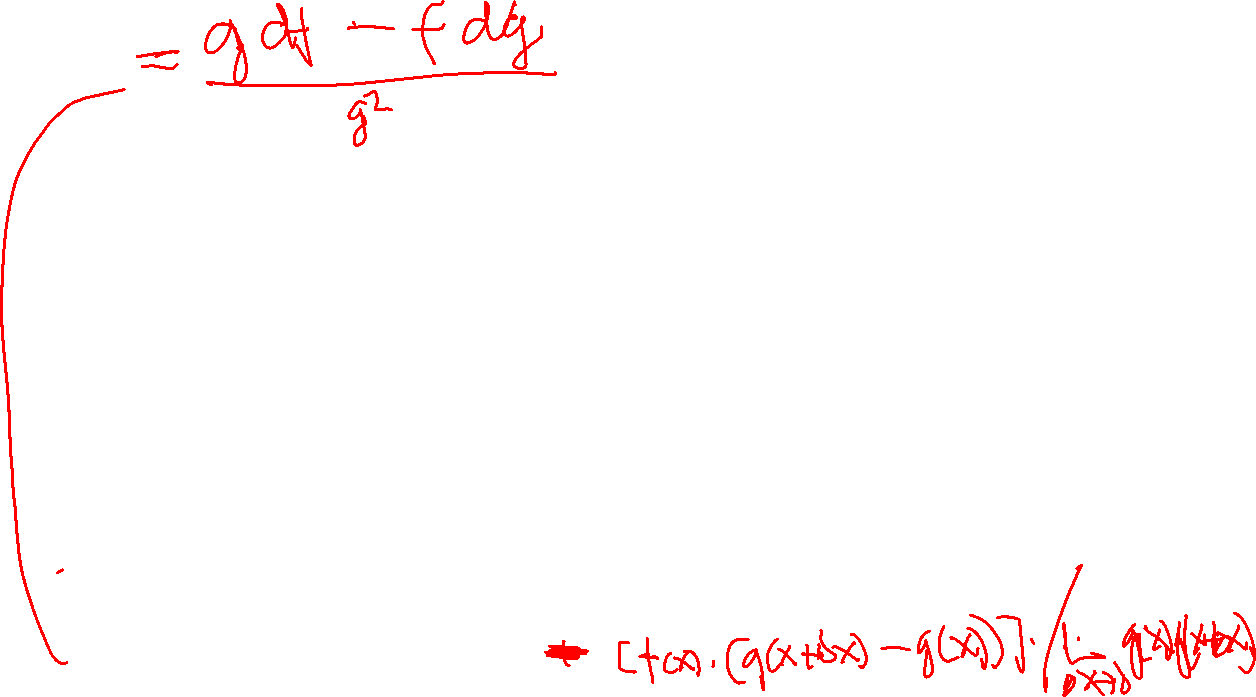 = g df - f dg
g²
- [f(x) · (g(x+Δx) - g(x))] · / lim g(x)g(x+Δx)
Δx→0